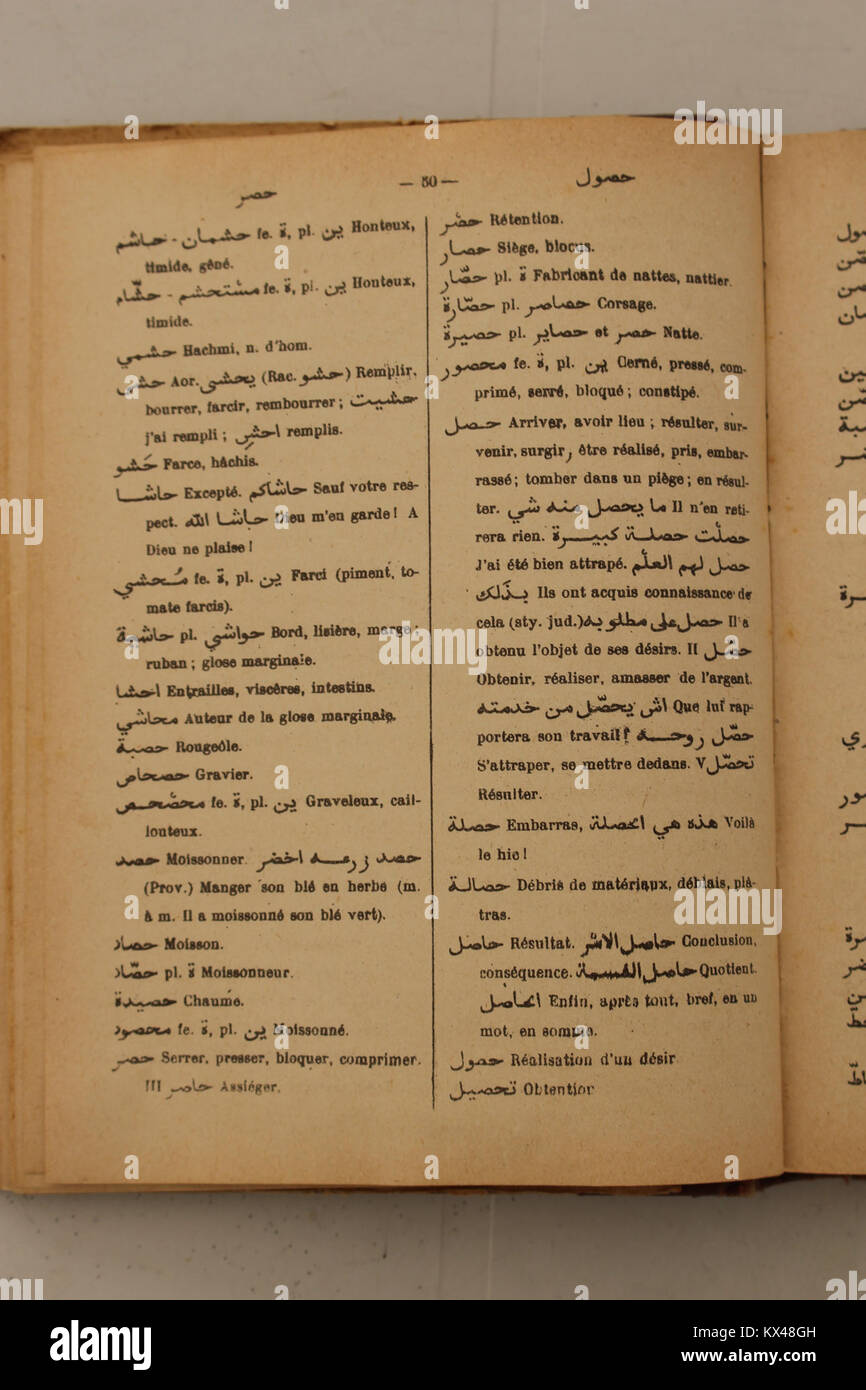 حصر — 50 — حصول
حاشم - حشمان fe. ة, pl. ين Honteux,
timide, gêné.
حشّام - مستحشم fe. ة, pl. ين Honteux,
timide.
حشمي Hachmi, n. d'hom.
حشى Aor. يحشي (Rac. حشو) Remplir,
bourrer, farcir, rembourrer; حشيت
j'ai rempli; احشِ remplis.
حَشو Farce, hâchis.
حاشا Excepté. حاشاكم Sauf votre res-
pect. حاشا الله Dieu m'en garde! A
Dieu ne plaise!
مُحشي fe. ة, pl. ين Farci (piment, to-
mate farcis).
حاشية pl. حواشي Bord, lisière, marge;
ruban; glose marginale.
احشا Entrailles, viscères, intestins.
محاشي Auteur de la glose marginale.
حصبة Rougeôle.
حصحاص Gravier.
محصحص fe. ة, pl. ين Graveleux, cail-
louteux.
حصد Moissonner. حصد زرعه اخضر
(Prov.) Manger son blé en herbe (m.
à m. Il a moissonné son blé vert).
حصاد Moisson.
حصّاد pl. ة Moissonneur.
حصيدة Chaume.
محصود fe. ة, pl. ين Moissonné.
حصر Serrer, presser, bloquer, comprimer.
III حاصر Assiéger.
حصْر Rétention.
حصار Siège, blocus.
حصّار pl. ة Fabricant de nattes, nattier.
حصّارة pl. حصاصر Corsage.
حصيرة pl. حصاير et حصر Natte.
محصور fe. ة, pl. ين Cerné, pressé, com-
primé, serré, bloqué; constipé.
حصل Arriver, avoir lieu; résulter, sur-
venir, surgir, être réalisé, pris, embar-
rassé; tomber dans un piège; en résul-
ter. ما يحصل منه شي Il n'en reti-
rera rien. حصلت حصلة كبيرة
J'ai été bien attrapé. حصل لهم العلم
بذلك Ils ont acquis connaissance de
cela (sty. jud.) حصل على مطلوبه Il a
obtenu l'objet de ses désirs. II حصّل
Obtenir, réaliser, amasser de l'argent.
اش يحصّل من خدمته Que lui rap-
portera son travail? حصّل روحه
S'attraper, se mettre dedans. V تحصّل
Résulter.
حصلة Embarras, هذه هي الحصلة Voilà
le hic!
حصالة Débris de matériaux, déblais, plâ-
tras.
حاصل Résultat. حاصل الامر Conclusion,
conséquence. حاصل القسمة Quotient.
الحاصل Enfin, après tout, bref, en un
mot, en somme.
حصول Réalisation d'un désir
تحصيل Obtention
alamy
Image ID: KX48GH
www.alamy.com